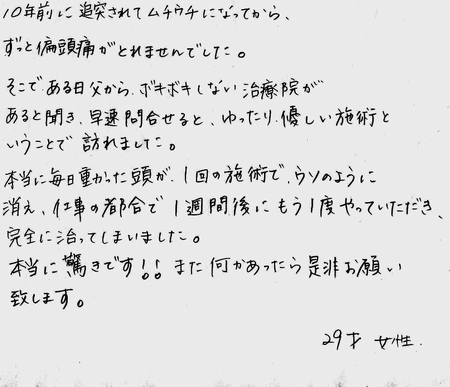 10年前に追突されてムチウチになってから、
ずっと偏頭痛がとれませんでした。
そこである日父から、ボキボキしない治療院が
あると聞き、早速問合せると、ゆったり、優しい施術と
いうことで訪れました。
本当に毎日重かった頭が、1回の施術で、ウソのように
消え、仕事の都合で1週間後にもう1度やっていただき、
完全に治ってしまいました。
本当に驚きです!! また何かあったら是非お願い
致します。
29才 女性.